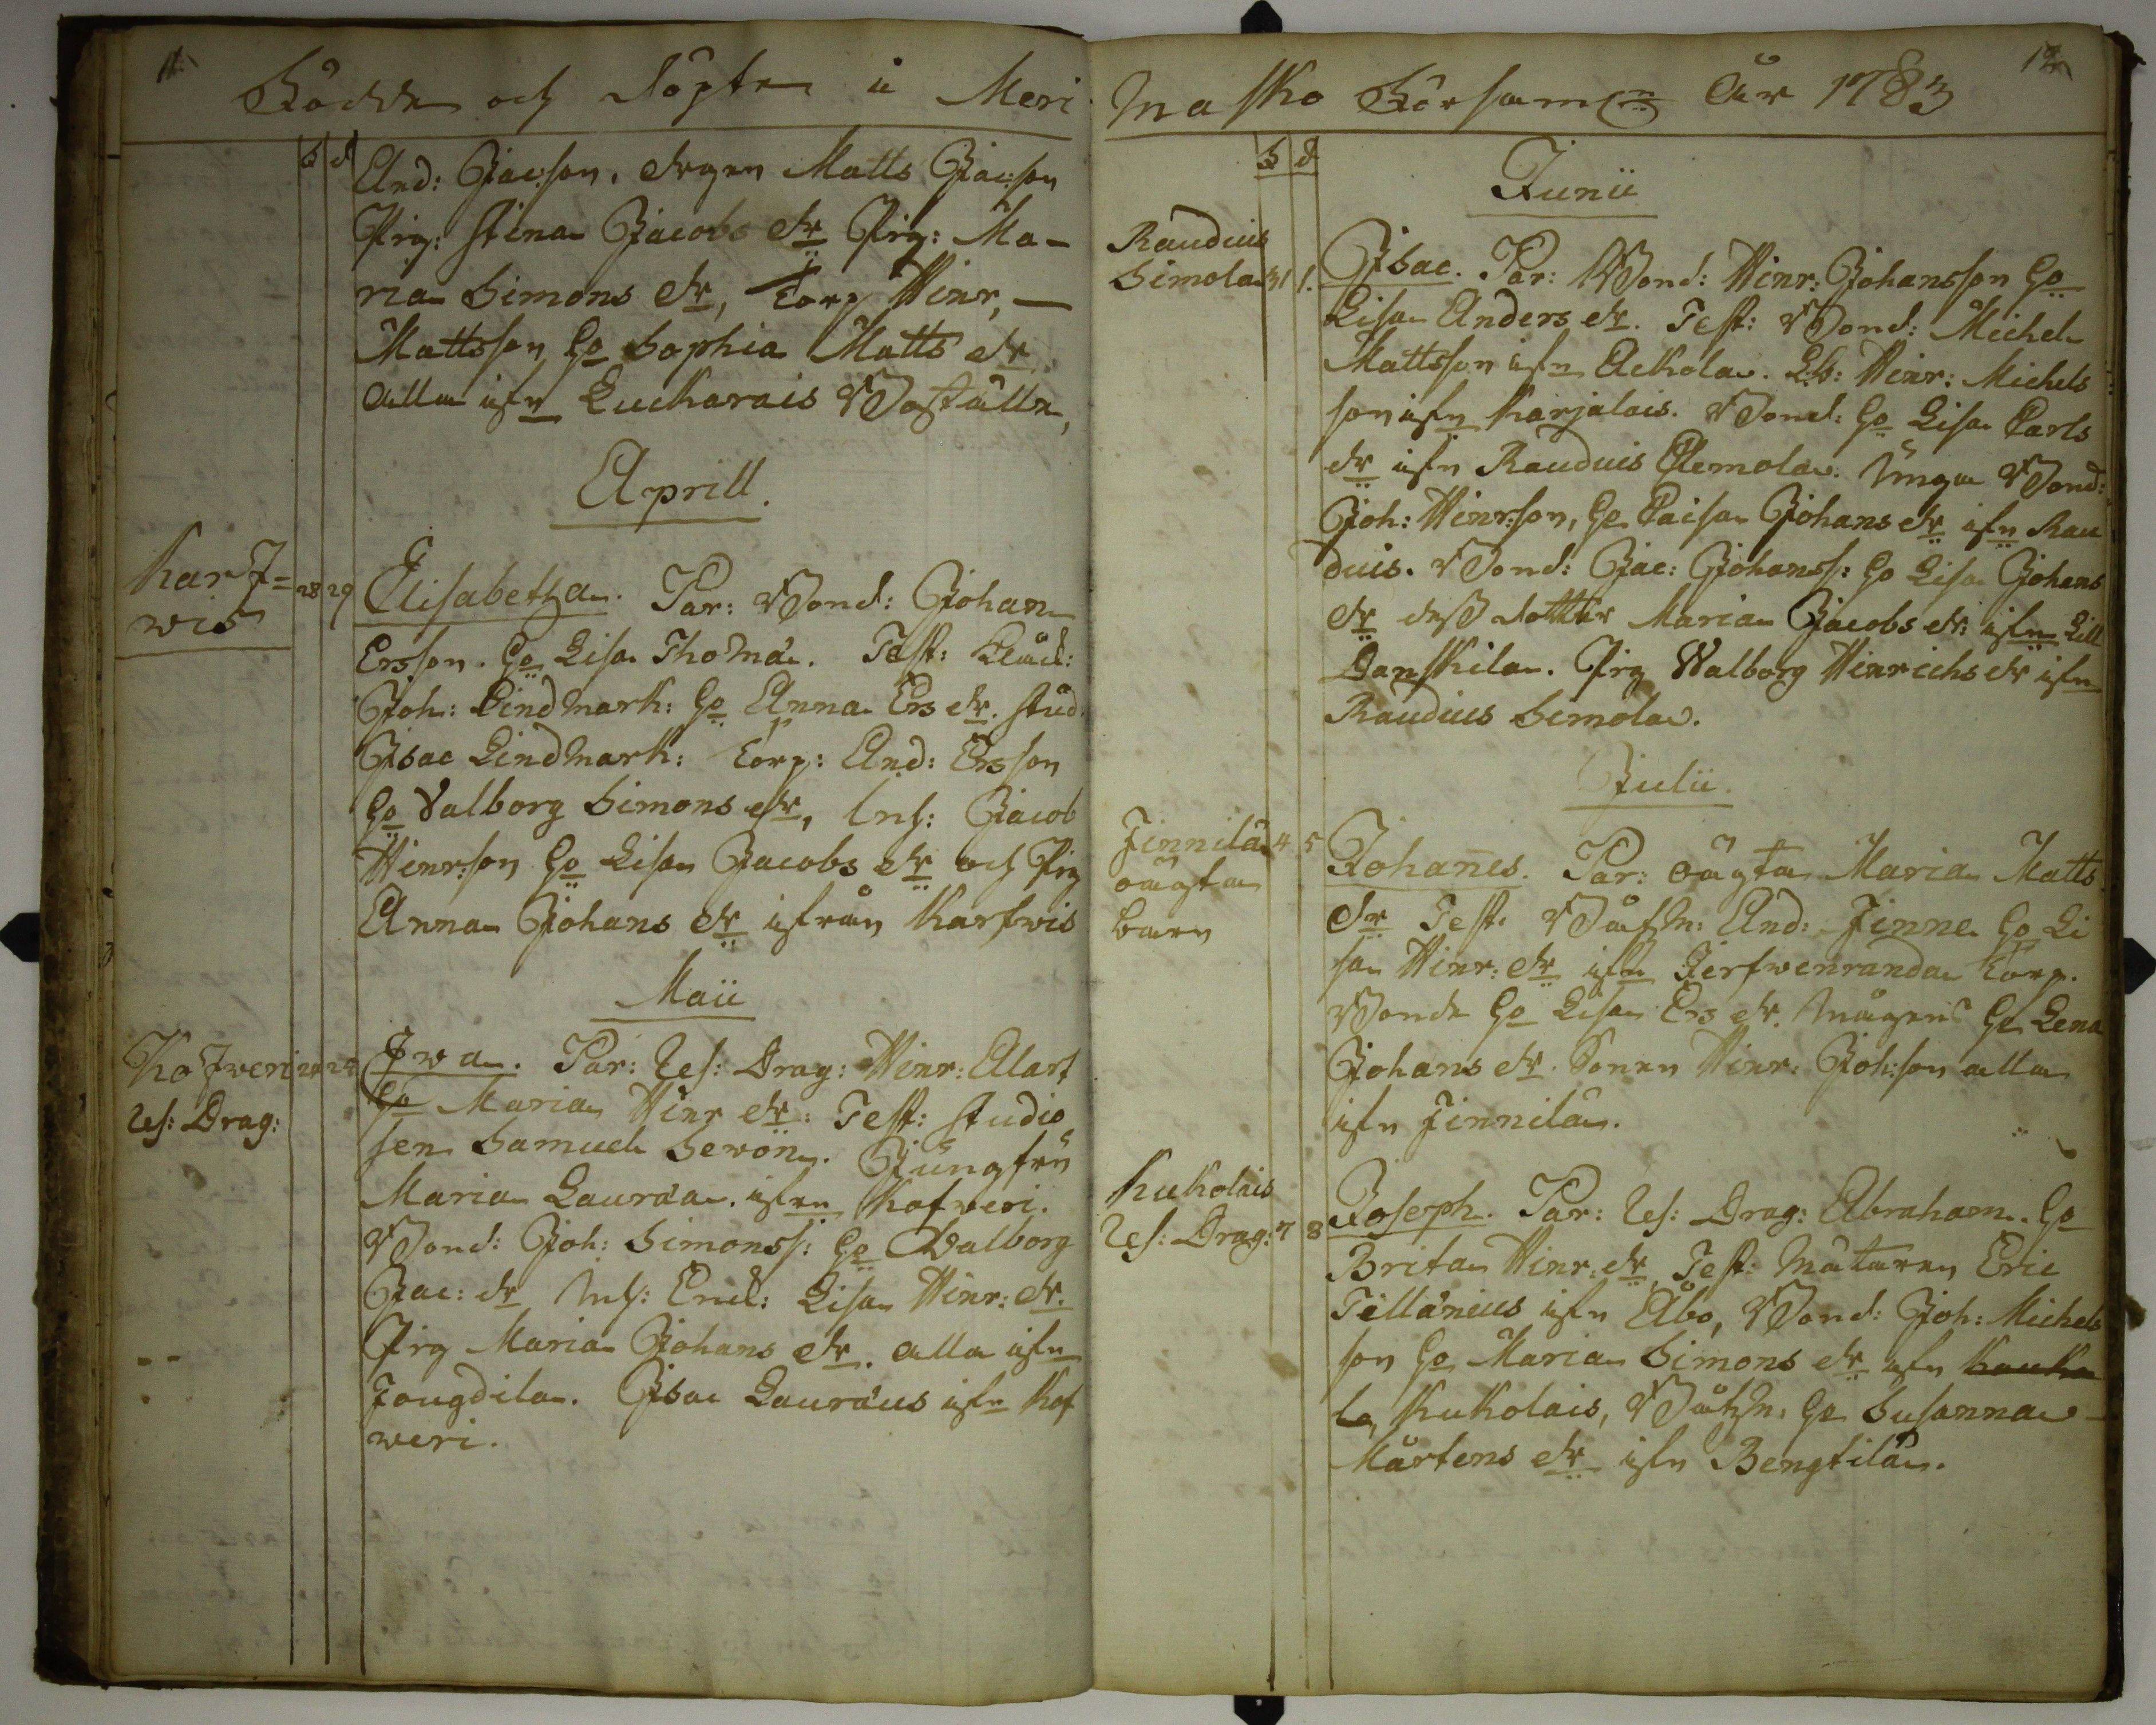 11.
Födde och döpte i Meri
b d
And: Jacson. drgen Matts Jacson
Prg: Stina Jacobs dr Prg: Ma-
ria Simons dr, Torp Hinr,
Mattsson Ho Sophia Matts dr
alla ifn Luckarais Boställe,
Aprill.
Karf=
wis
28 29
Elisabetha. Par: Bond: Johan
Ersson. Ho Lisa Thomæ. Test: Klåck:
Joh: Lindmark: Ho Anna Ers dr. Stud:
Isac Lindmark: Torp: And: Ersson
Ho Valborg Simons dr, Inh: Jacob
Hinrson Ho Lisa Jacobs dr och Prg
Anna Johans dr ifrån Karfwis
Maii
Kofveri
Res: Drag:
24 24
Ewa. Par: Res: Drag: Hinr: Alart
Ho Maria Hinr dr: Test: Studio
sen Samuel Sewon. Jungfru
Maria Lauræa. ifrn Kofveri.
Bond: Joh: Simonss: Ho Walborg
Jac: dr Inh: Enck: Lisa Hinr: dr.
Prg Maria Johans dr. alla ifn
Jougdila. Isac Lauræus ifn Kof
weri.
12
Masko Församn År 1783
b d
Junii
Rauduis
Simola
31 1.
Isac. Par: Bond: Hinr: Johansson Ho
Lisa Anders dr. Test: Bond: Michel
Mattsson ifn Ackola. Hinr: Michels
son ifn Karjalais. Bond: Ho Lisa Carls
dr ifn Rauduis Alemola. Unga Bond:
Joh: Hinrson, Ho Caisa Johans dr ifn Rau
duis. Bond: Jac: Johanss: Ho Lisa Johans
dr dess dotter Maria Jacobs dr: ifn Lill
Danskila. Prg Walborg Hinrichs dr ifn
Rauduis Simola.
Julii.
Finnila
oägta
barn
4 5
Johannes. Par: oägta Maria Matts
dr Test: Båtsn: And: Finne Ho Li
sa Hinr: dr ifn Jerfwenranda Torp.
Bonde Ho Lisa Ers dr. Mågen Ho Lena
Johans dr. Sonen Hinr: Joh:son alla
ifn Finnila.
Kukolais
Res: Drag:
7 8
Joseph. Par: Res: Drag: Abraham. Ho
Brita Hinr: dr, Test: Mätaren Eric
Tillænius ifn Åbo, Bond: Joh: Michels
son Ho Maria Simons dr ifn Kauka
la, Kukolais, Båtsn: Ho Susanna
Mårtens dr ifn Bengtila.